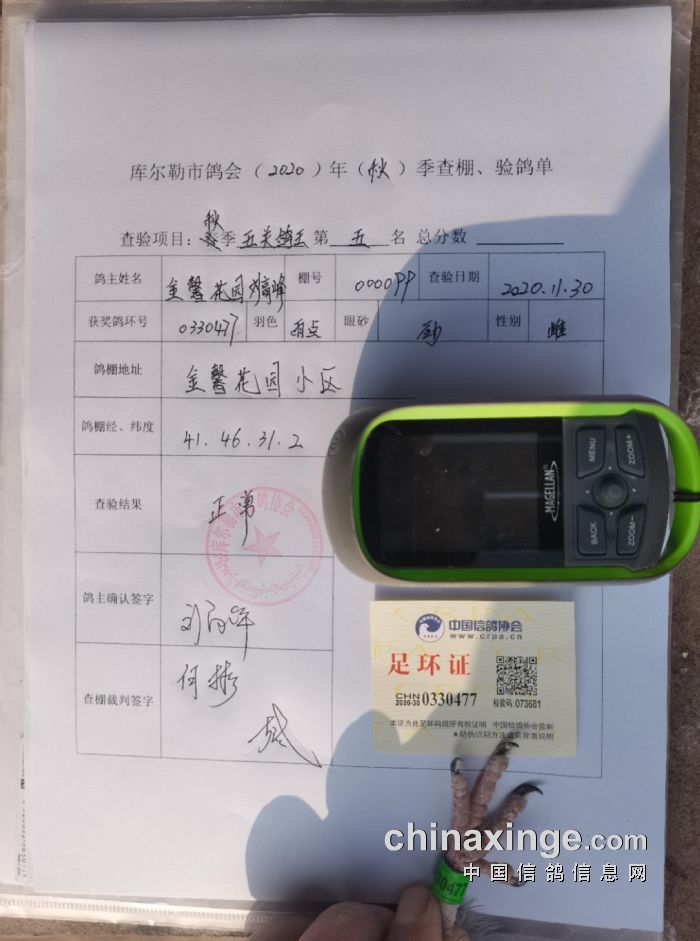 库尔勒市鸽会（2020）年（秋）季查棚、验鸽单
秋
查验项目：春季 五关鸽王 第 五 名 总分数
鸽主姓名 金馨花园刘高峰 棚号 000099 查验日期 2020.11.30
获奖鸽环号 0330477 羽色 雨点 眼砂 砂 性别 雌
鸽棚地址 金馨花园小区
鸽棚经、纬度 41.46.31.2
查验结果 正常
库尔勒市信鸽协会
鸽主确认签字
查棚裁判签字 何彬
MAGELLAN®
MENU
ZOOM+
BACK
ZOOM-
中国信鸽协会
www.crpa.cn
足环证
CHN
2020-30 0330477
校验码:073681
本证为此足环码鸽所有权证明 中国信鸽协会监制
★防伪识别方法请见背面说明
30477
chinaxinge.com
中国信鸽信息网